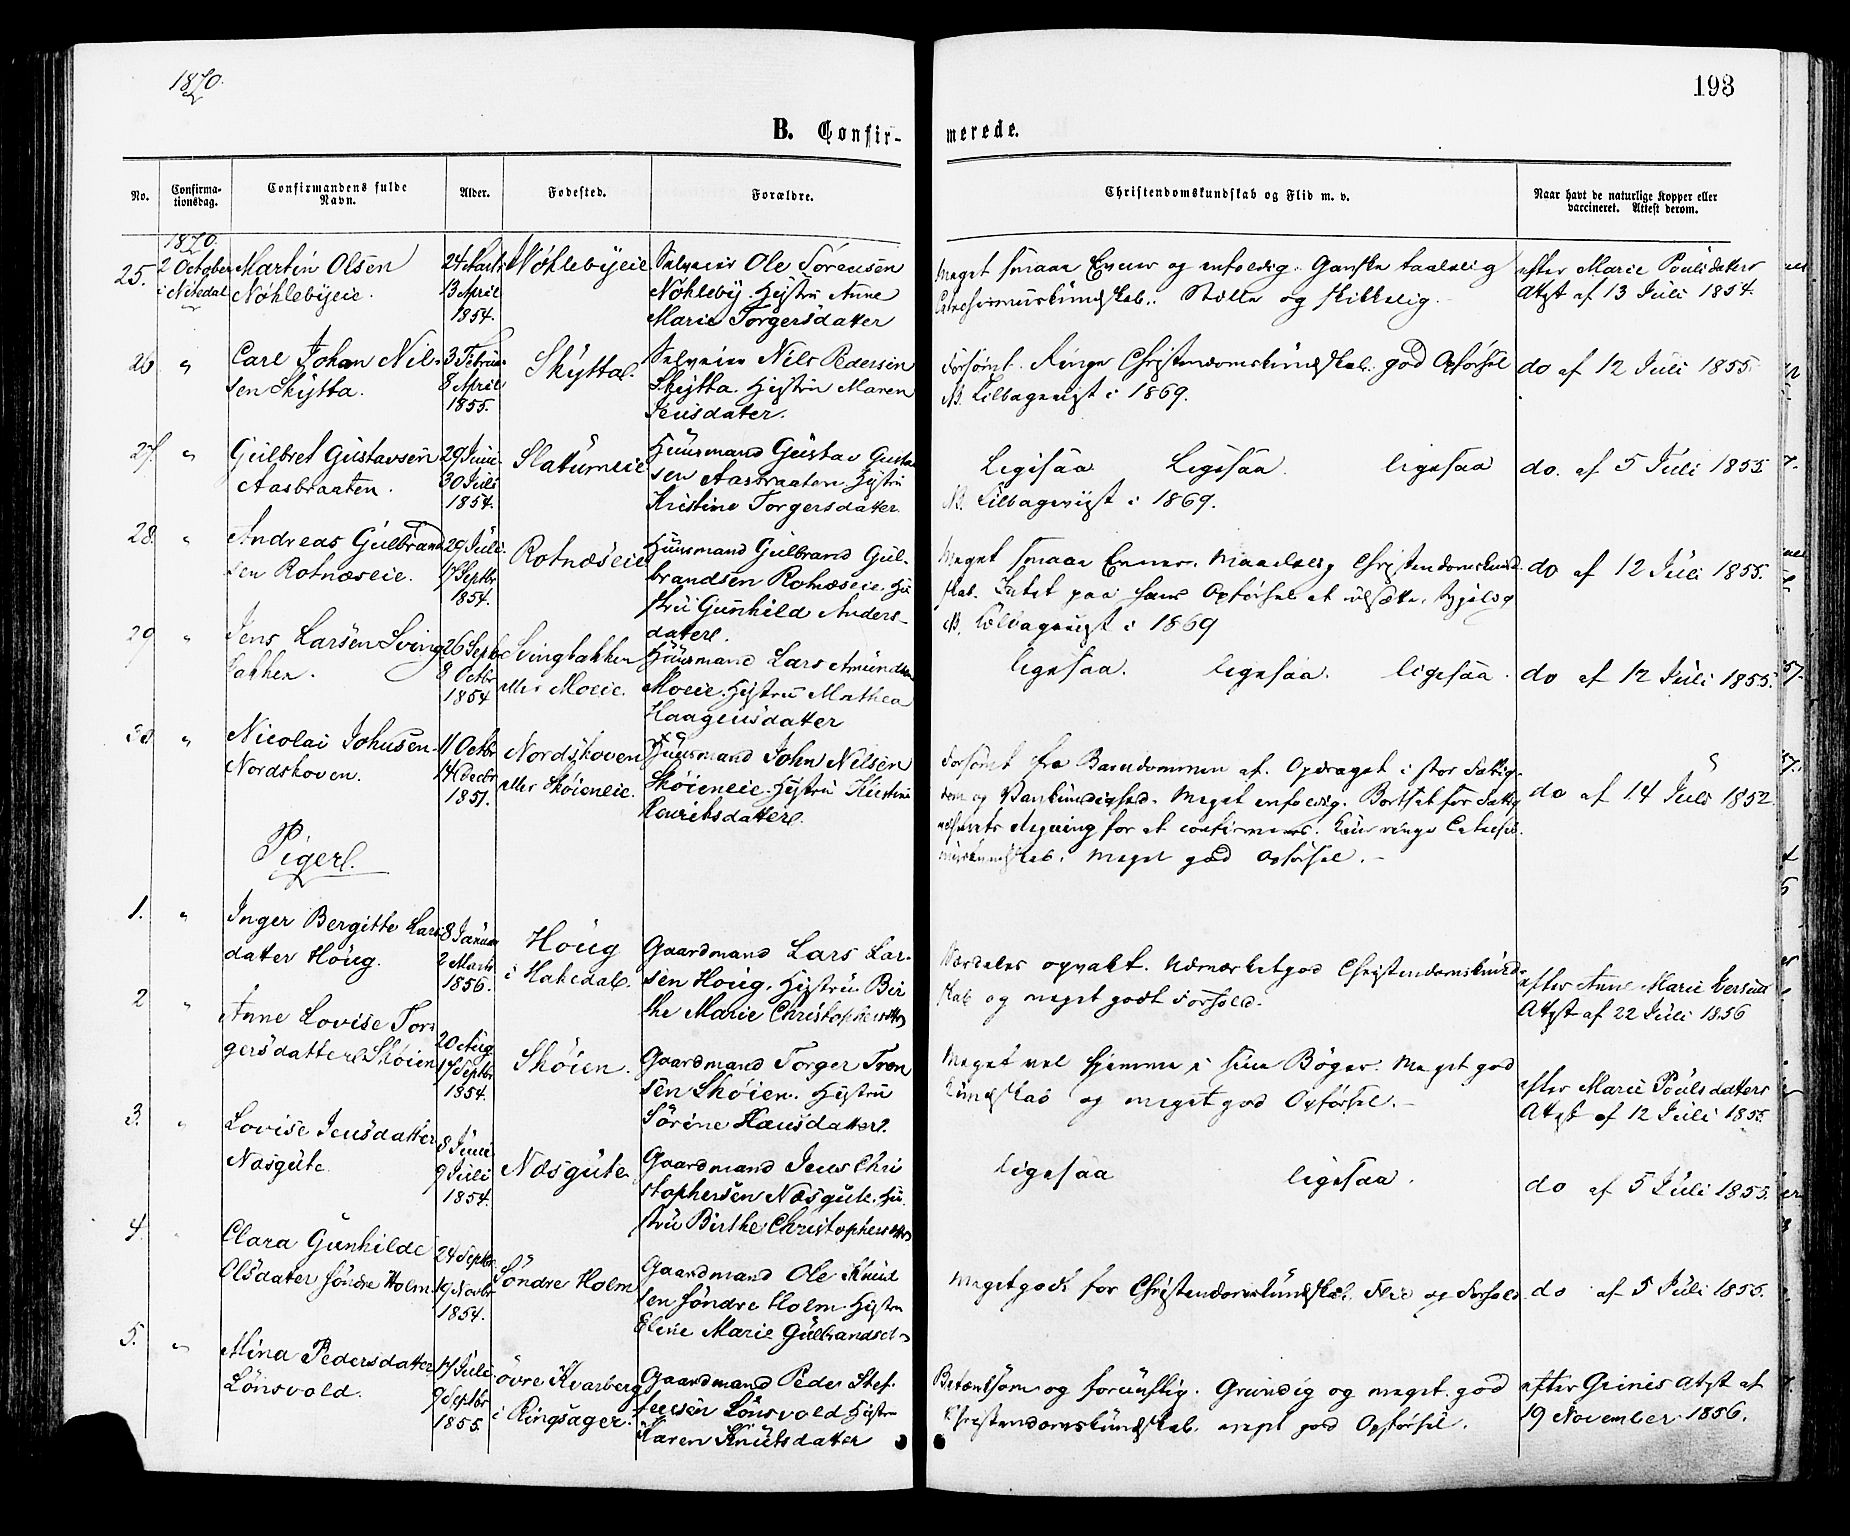 1870.
193
B. Confir-
merede.
No.
Confirma-
tionsdag.
Confirmandens fulde
Navn.
Alder.
Fødested.
Forældre.
Christendomskundskab og Flid m. v.
Naar havt de naturlige Kopper eller
vaccineret. Attest derom.
1870.
25.
2 October
i Nitedal
Martin Olsen
Nøhlebyeie.
24 Marts
13 April
1854.
Nøhlebyeie
Selveier Ole Sørensen
Nøhleby. Hustru Anne
Marie Torgersdatter
Meget smaae Evner og enfoldig. Ganske taalelig
Catechismuskundskab. Stille og skikkelig.
efter Marie Poulsdatters
Atest af 13 Juli 1854.
26
"
Carl Johan Nil-
sen Skytta.
3 Februar
8 April
1855.
Skytta.
Selveier Nils Pedersen
Skytta. Hustru Maren
Jensdater.
Forsømt. Ringe Christendomskundskab. god Opførsel
NB. Tilbageviist i 1869.
do af 12 Juli 1855.
27.
"
Gulbret Gustavsen
Aasbraaten.
29 Juni
30 Juli
1854.
Slatumeie
Huusmand Gustav Gusta
sen Aasbraaten. Hustru
Kristine Torgersdatter.
Ligesaa Ligesaa. ligesaa
NB. Tilbageviist i 1869.
do. af 5 Juli 1855
28.
"
Andreas Gulbrand
sen Rotnæseie.
29 Juli
17 Septbr
1854.
Rotnæseie
Huusmand Gulbrand Gul-
brandsen Rotnæseie. Hu
stru Gunhild Anders-
dater.
Meget smaae Evner. Maadelig Christendomskund-
skab. Intet paa hans Opførsel at udsætte.
NB. Tilbageviist i 1869
do af 12 Juli 1855.
29
"
Jens Larsen Sving
bakken.
26 Septb
8 Octbr
1854
Svingbakken
eller Moeie.
Huusmand Lars Amundsen
Moeie. Hustru Mathea
Haagensdatter
ligesaa. ligesaa. ligesaa.
do af 12 Juli 1855.
30
"
Nicolai Johnsen
Nordskoven.
11 Octbr
14 Decbr
1851.
Nordskoven
eller Skøieneie.
Huusmand John Nilsen
Skøieneie. Hustru Kirstine
Houritsdatter.
Forsømt fra Barndommen af. Opdraget i stor Fattig-
dom og Vankundighed. Meget enfoldig. Bortsat for Fattig
væsenets Regning for at confirmeres. Kun ringe Catechis-
muskundskab. Meget god Opførsel.
do af 14 Juli 1852
Piger.
1.
"
Inger Bergitte Lars
dater Houg.
8 Januar
2 Marts
1856.
Houg
i Hakedal.
Gaardmand Lars Lar-
sen Houg. Hustru Bir
the Marie Christophersdtr
Særdeles opvakt. Udmærket god Christendomskund-
skab og meget godt Forhold.
efter Anne Marie Iversens
Atest af 22 Juli 1856
2
"
Anne Lovise Tor-
gersdatter Skøien
20 Aug
17 Septbr
1854.
Skøien.
Gaardmand Torger Tron
sen Skøien. Hustru
Sørine Hansdatter.
Meget vel hjemme i sine Bøger. Meget god
Kundskab og meget god Opførsel.
efter Marie Poulsdaters
Atest af 12 Juli 1855.
3.
"
Lovise Jensdatter
Næsgute
8 Juni
9 Juli
1854.
Næsgute
Gaardmand Jens Chri
stophersen Næsgute. Hu-
stru Birthe Christophersdtr
ligesaa ligesaa.
do af 5 Juli 1855.
4.
"
Clara Gunhilde
Olsdater søndre Holm
24 Septbr.
19 Novbr
1854.
Søndre Holm
Gaardmand Ole Knud
sen søndre Holm. Hustru
Eline Marie Gulbrandsdtr
Meget godt for Christendomskundskab. Flid og Forhold
do af 5 Juli 1855.
5.
"
Mina Pedersdatter
Lønsvold.
17 Juli
9 Septbr
1855.
øvre Kvarberg
i Ringsager.
Gaardmand Peder Stef-
fensen Lønsvold Hustru
Karen Knutsdatter
Betænksom og fornuftig. Grundig og meget god
Christendomskundskab. meget god Opførsel.
efter Grinis Atest af
19 November 1856.